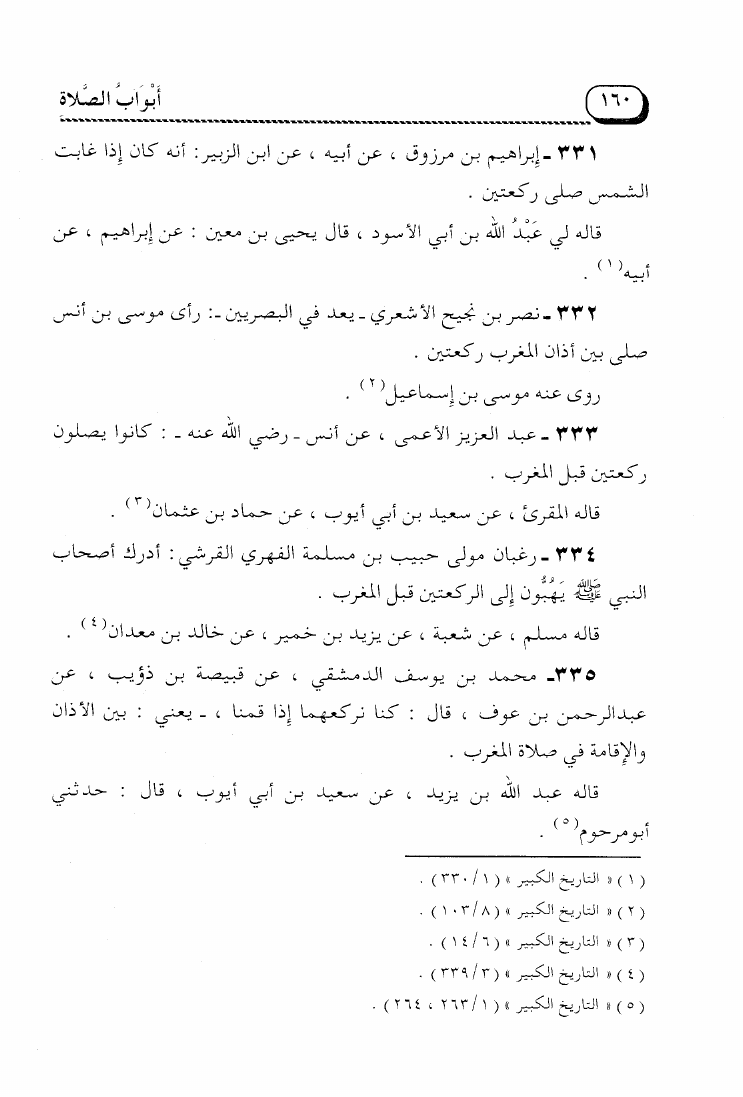 ١٦٠ أَبْوَابُ الصَّلاة
٣٣١ ـ إبراهيم بن مرزوق ، عن أبيه ، عن ابن الزبير : أنه كان إذا غابت
الشمس صلى ركعتين .
قاله لي عَبْدُ الله بن أبي الأسود ، قال يحيى بن معين : عن إبراهيم ، عن
أبيه(١) .
٣٣٢ ـ نصر بن نجيح الأشعري ـ يعد في البصريين ـ : رأى موسى بن أنس
صلى بين أذان المغرب ركعتين .
روى عنه موسى بن إسماعيل(٢) .
٣٣٣ ـ عبد العزيز الأعمى ، عن أنس ـ رضي الله عنه ـ : كانوا يصلون
ركعتين قبل المغرب .
قاله المقرئ ، عن سعيد بن أبي أيوب ، عن حماد بن عثمان(٣) .
٣٣٤ ـ رغبان مولى حبيب بن مسلمة الفهري القرشي : أدرك أصحاب
النبي ﷺ يَهُبُّون إلى الركعتين قبل المغرب .
قاله مسلم ، عن شعبة ، عن يزيد بن خمير ، عن خالد بن معدان(٤) .
٣٣٥ـ محمد بن يوسف الدمشقي ، عن قبيصة بن ذؤيب ، عن
عبدالرحمن بن عوف ، قال : كنا نركعهما إذا قمنا ، ـ يعني : بين الأذان
والإقامة في صلاة المغرب .
قاله عبد الله بن يزيد ، عن سعيد بن أبي أيوب ، قال : حدثني
أبومرحوم(٥) .
(١) « التاريخ الكبير » (١/ ٣٣٠) .
(٢) « التاريخ الكبير » (٨/ ١٠٣) .
(٣) « التاريخ الكبير » (٦/ ١٤) .
(٤) « التاريخ الكبير » (٣/ ٣٣٩) .
(٥) « التاريخ الكبير » (١/ ٢٦٣ ، ٢٦٤) .